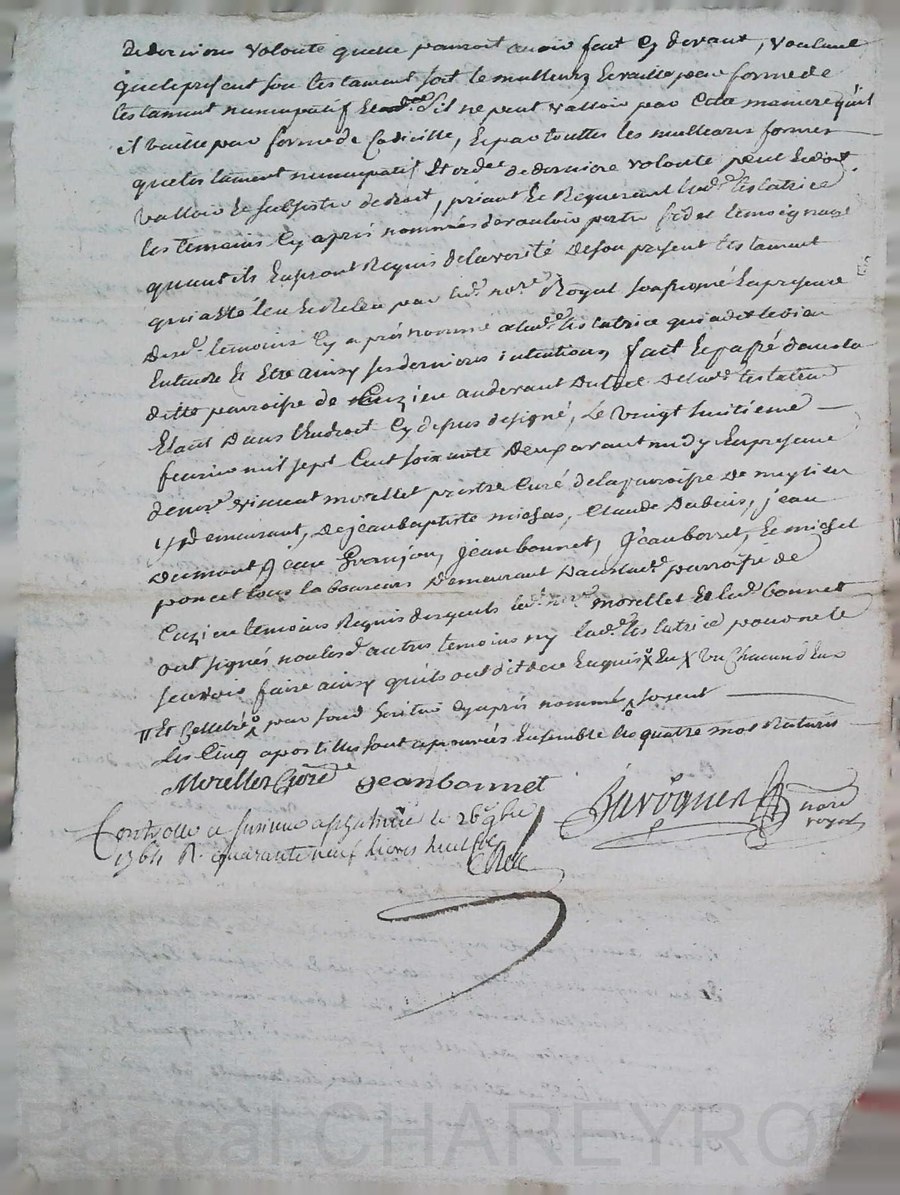 de derniere volonté quelle pourroit avoir fait Cy devant, voulant
que le present son testament soit le meilleur, Et vaille par forme de
testament nuncupatif Et s'il ne peut valloir par Cette maniere qu'il
il vaille par forme de Codicille, Et par touttes les meilleures formes
que testament nuncupatif Et ord.re de derniere volonté peut Et doit
valloir Et subsister de droit, priant Et Requerant lad.e testatrice
les temoins Cy apres nommés de vouloir porter fidel temoignage
quant ils En seront Requis de la verité De son present testament
qui a eté leu Et Releu par led. no.re Royal soussigné En presence
Desd. temoins Cy apres nommé a lad.e testatrice qui a dit le bien
Entendre Et Etre ainsy ses dernieres intentions, fait Et passé dans la
ditte parroisse de Cuzieu au devant De lad.e testatrice
Etant Dans l'Endroit Cy dessus designé, Le vingt huitieme
fevrier mil sept Cent soixante Deux avant midy En presence
de m.re vincent morellet prestre Curé de la parroisse De
y demeurant, De jean baptiste michas, Claude Dubuis, jean
Dumont, jean Granjon, jean bonnet, jean borret, Et michel
poncet tous laboureurs Demeurant Dans lad.e parroisse de
Cuzieu temoins Requis desquels led. m.re morellet Et led. bonnet
ont signés non les d. autres temoins ny lad.e testatrice pour ne le
scavoir faire ainsy qu'ils ont dit de ce Enquis X En X vu Chacun d'Eux
Et Cellebré par fond heritier Cy apres nommé soyent
Les Cinq apostilles sont aprouvées Ensemble les quatre mots Raturés
Morellet Curé jean bonnet
no.re royal
Controllé a st galmier le 26 9bre
1764 R. quarante neuf livres huit sols
Pascal CHAREYRON